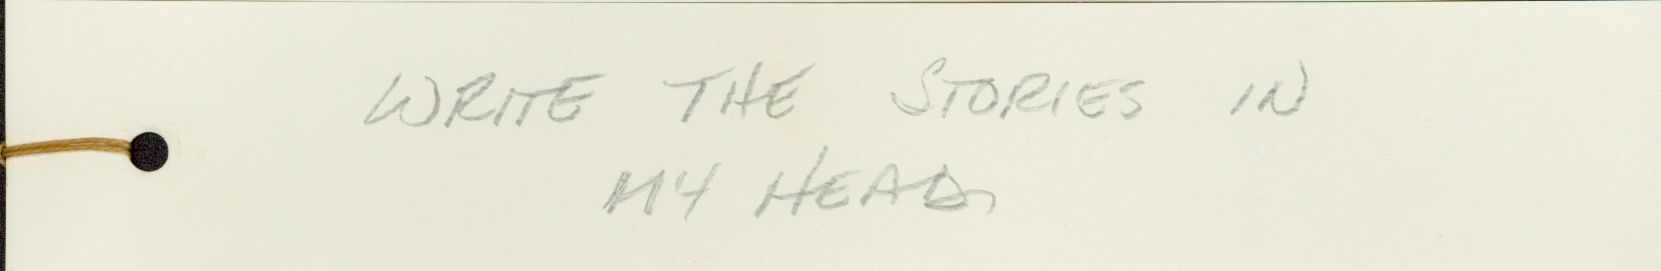 WRITE THE STORIES IN
MY HEAD